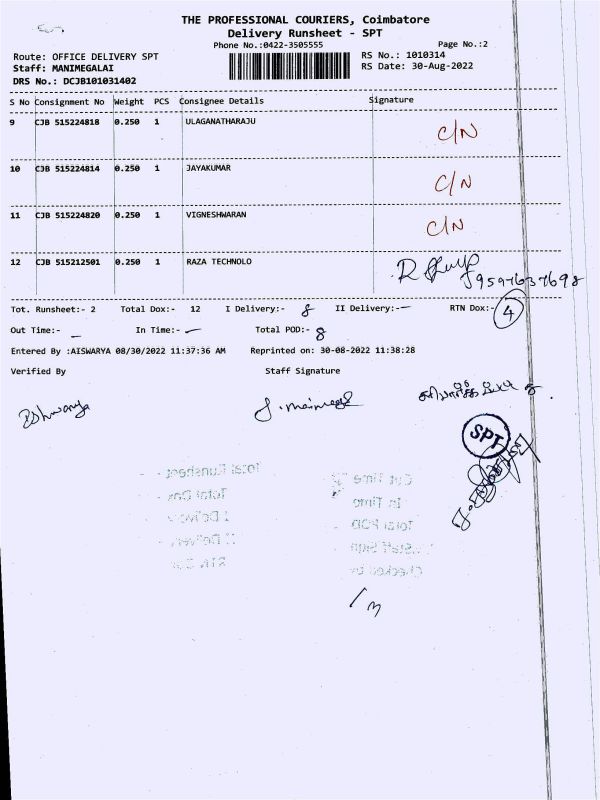 THE PROFESSIONAL COURIERS, Coimbatore
Delivery Runsheet - SPT
Phone No.:0422-3505555 Page No.:2
Route: OFFICE DELIVERY SPT RS No.: 1010314
Staff: MANIMEGALAI RS Date: 30-Aug-2022
DRS No.: DCJB101031402
S No Consignment No Weight PCS Consignee Details Signature
9 CJB 515224818 0.250 1 ULAGANATHARAJU C/N
10 CJB 515224814 0.250 1 JAYAKUMAR C/N
11 CJB 515224820 0.250 1 VIGNESHWARAN C/N
12 CJB 515212501 0.250 1 RAZA TECHNOLO 9597637698
Tot. Runsheet:- 2 Total Dox:- 12 I Delivery:- 8 II Delivery:- — RTN Dox:- 4
Out Time:- — In Time:- — Total POD:- 8
Entered By :AISWARYA 08/30/2022 11:37:36 AM Reprinted on: 30-08-2022 11:38:28
Verified By Staff Signature
SPT
Total Runsheet - Out Time
Total Dox - In Time
I Delivery - Total POD
II Delivery - Staff Sign
RTN Dox Checked by